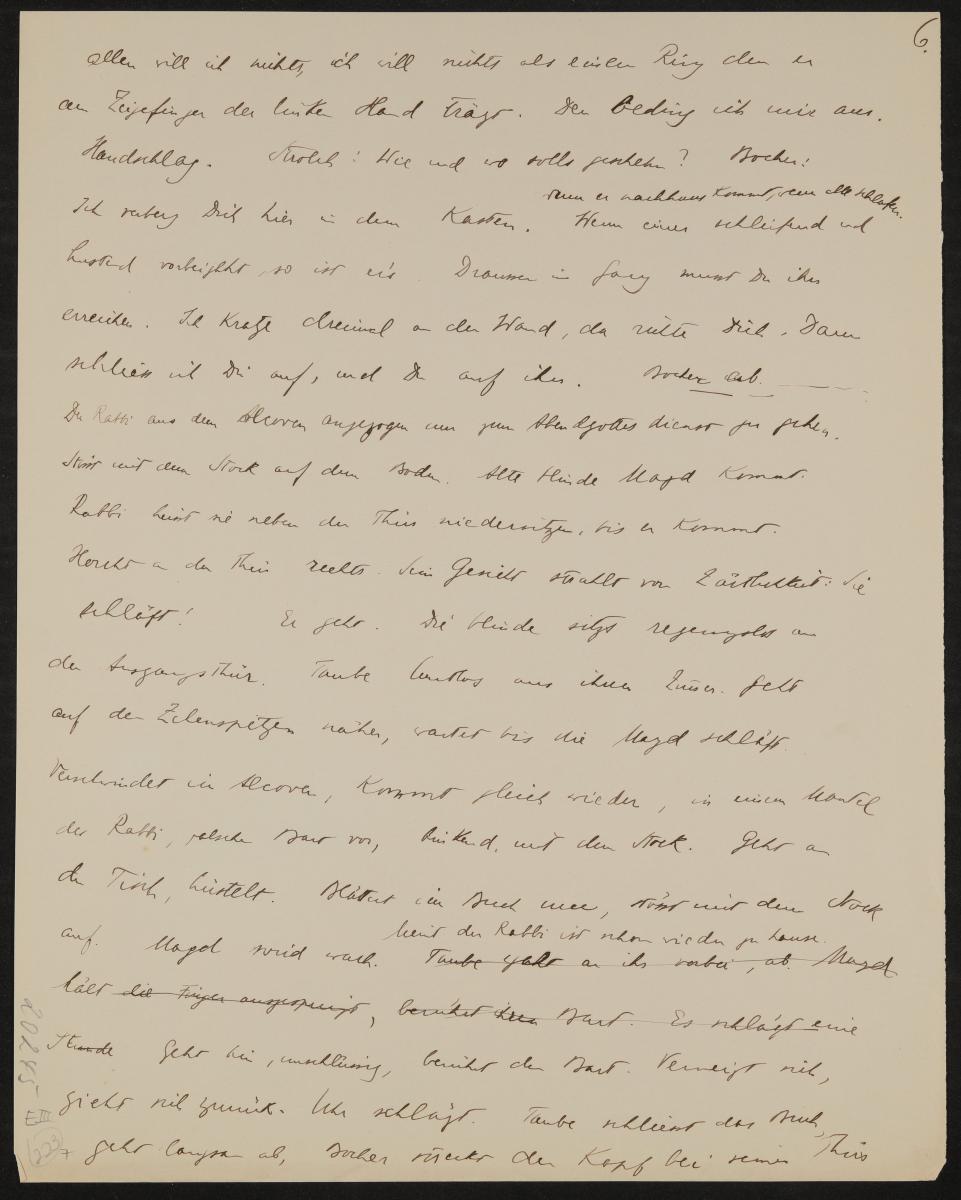 6.
allem will ich nichts, ich will nichts als einen Ring den er
am Zeigefinger der linken Hand trägt. Den beding ich mir aus.
Handschlag. Strolch: Wie und wo solls geschehn? Bocher:
wenn er nachhaus kommt, wenn alle schlafen.
Ich verberg Dich hier in dem Kasten. Wenn einer schleifend und
hustend vorbeigeht so ist er's. Draussen im Gang musst Du ihn
erreichen. Ich kratze dreimal an der Wand, da rühre Dich. Dann
schliess ich Dir auf, und Du auf ihn. Bocher ab.
Der Rabbi aus dem Alcoven angezogen um zum Abendgottesdienst zu gehen.
Stösst mit dem Stock auf den Boden. Alte blinde Magd kommt.
Rabbi heisst sie neben der Thür niedersitzen, bis er kommt.
Horcht an der Thür rechts. Sein Gesicht strahlt von Zärtlichkeit: Sie
schläft! Er geht. Die blinde sitzt regungslos an
der Ausgangsthür. Taube lautlos aus ihrem Zimmer. Geht
auf den Zehenspitzen näher, wartet bis die Magd schläft.
Verschwindet im Alcoven, kommt gleich wieder, in einem Mantel
des Rabbi, falschen Bart vor, hinkend, mit dem Stock. Geht an
den Tisch, hüstelt. Blättert im Buch um, stösst mit dem Stock
meint der Rabbi ist schon wieder zu hause.
auf. Magd wird wach. Taube geht an ihr vorbei, ab. Magd
hält die Finger ausgespreizt, berührt ihren Bart. Es schlägt eine
Stunde Geht hin, unschlüssig, berührt den Bart. Verneigt sich,
zieht sich zurück. Uhr schlägt. Taube schliesst das Buch,
geht langsam ab, Bocher steckt den Kopf bei seiner Thür
20245
III
223